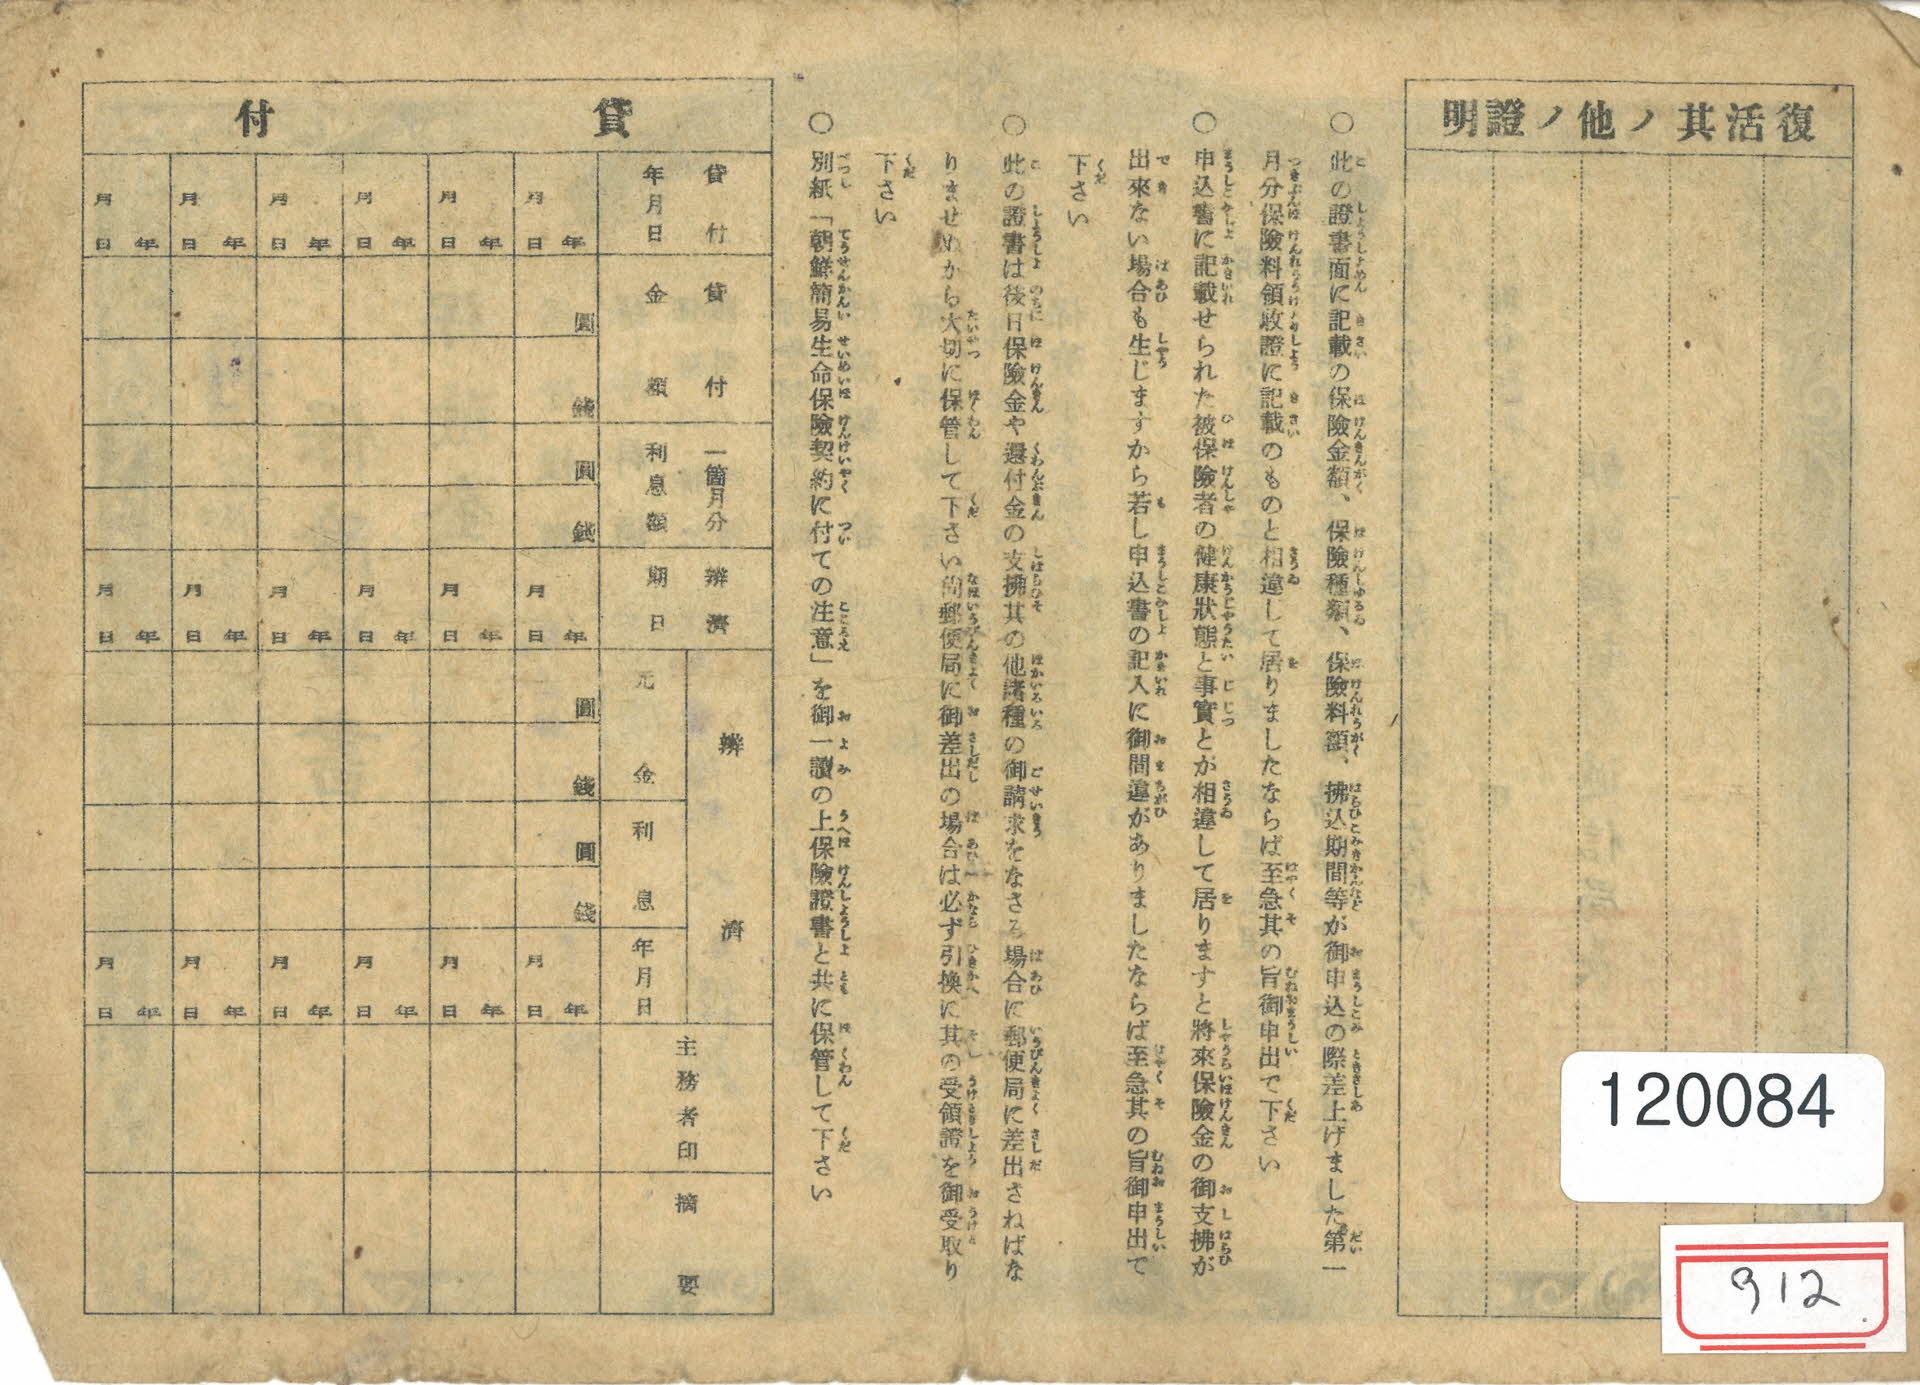 復活其ノ他ノ證明
○此の證書面に記載の保險金額、保險種類、保險料額、拂込期間等が御申込の際差上げました第一
月分保險料領收證に記載のものと相違して居りましたならば至急其の旨御申出で下さい
○申込書に記載せられた被保險者の健康狀態と事實とが相違して居りますと將來保險金の御支拂が
出來ない場合も生じますから若し申込書の記入に御間違がありましたならば至急其の旨御申出で
下さい
○此の證書は後日保險金や還付金の支拂其の他諸種の御請求をなさる場合に郵便局に差出さねばな
りませぬから大切に保管して下さい尚郵便局に御差出の場合は必ず引換に其の受領證を御受取り
下さい
○別紙「朝鮮簡易生命保險契約に付ての注意」を御一讀の上保險證書と共に保管して下さい
貸付
貸付年月日
年月日 年月日 年月日 年月日 年月日 年月日
貸付金額
圓
錢
一箇月分利息額
圓
錢
辨濟期日
年月日 年月日 年月日 年月日 年月日 年月日
辨濟
元金
圓
錢
利息
圓
錢
年月日
年月日 年月日 年月日 年月日 年月日 年月日
主務者印
摘要
120084
912